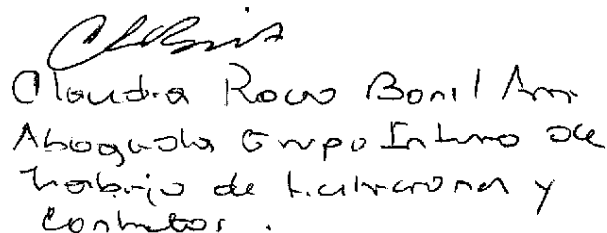 Claudia Rocio Bonil
Abogada Grupo Interno de
trabajo de Licitaciones y
Contratos.